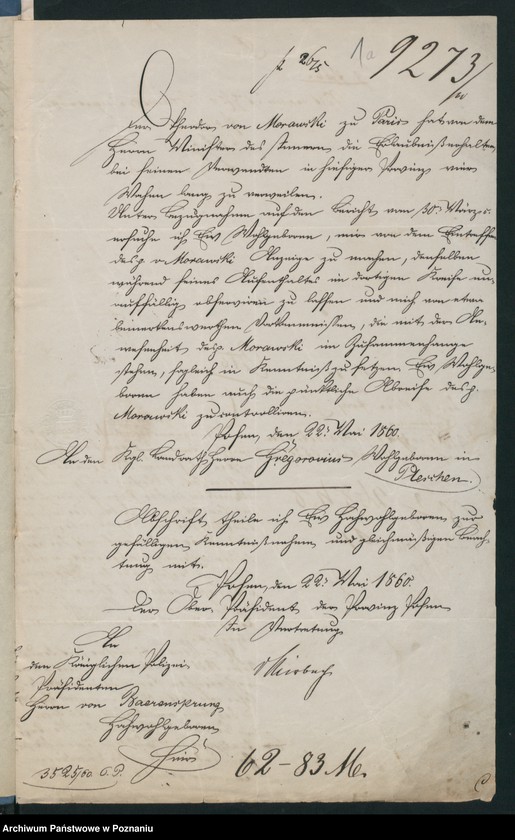 26/5
1a 9273/
Der Theodor von Morawski zu Paris hat von dem
Herrn Minister des Innern die Erlaubniß erhalten,
bei seinen Verwandten in hiesiger Provinz vier
Wochen lang zu verweilen.
Unter Bezugnahme auf den Bericht vom 30. März
ersuche ich Ew Wohlgeboren, mir von dem Eintreffen
des p. v. Morawski Anzeige zu machen, denselben
während seines Aufenthaltes im dortigen Kreise un-
auffällig observiren zu lassen und mich von etwa
bemerkenswerthen Vorkommnissen, die mit der An-
wesenheit des p. Morawski im Zusammenhange
stehen, sogleich in Kenntniß zu setzen. Ew Wohlge-
boren haben auch die pünktliche Abreise des p.
Morawski zu controlliren.
Posen, den 22. Mai 1860.
An den Kgl. Landrath Herrn Gregorovius Wohlgeboren in
Pleschen.
Abschrift theile ich Ew Hochwohlgeboren zur
gefälligen Kenntnißnahme und gleichmäßigen Beach-
tung mit.
Posen, den 22. Mai 1860.
Der Ober-Präsident der Provinz Posen
In Vertretung
Mirbach
An
den Königlichen Polizei
Präsidenten
Herrn von Baerensprung
Hochwohlgeboren
hier
3525/60 O.P.
62-83 M.
Archiwum Państwowe w Poznaniu